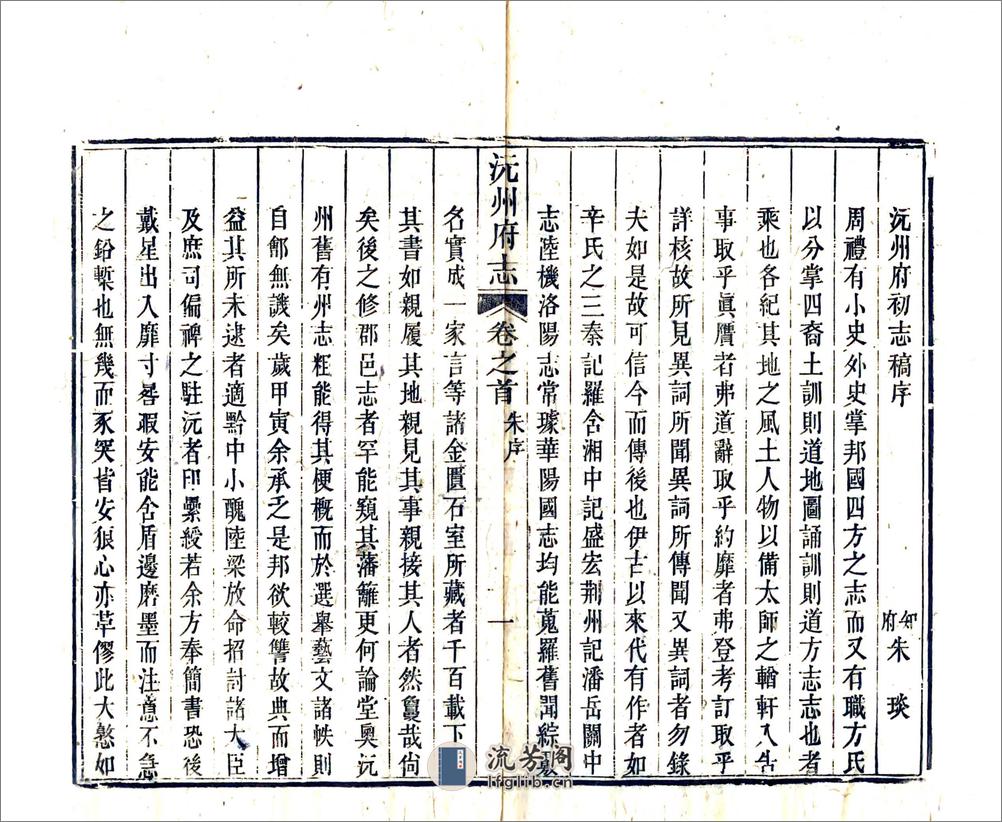 沅州府初志稿序
知府朱琰
周禮有小史外史掌邦國四方之志而又有職方氏
以分掌四裔土訓則道地圖誦訓則道方志志也者
乘也各紀其地之風土人物以備太師之輶軒入告
事取乎眞贋者弗道辭取乎約靡者弗登考訂取乎
詳核故所見異詞所聞異詞所傳聞又異詞者勿錄
夫如是故可信今而傳後也伊古以來代有作者如
辛氏之三秦記羅含湘中記盛宏荆州記潘岳關中
志陸機洛陽志常璩華陽國志均能蒐羅舊聞綜覈
沅州府志 卷之首 朱序 一
名實成一家言等諸金匱石室所藏者千百載下
其書如親履其地親見其事親接其人者然敻哉尙
矣後之修郡邑志者罕能窺其藩籬更何論堂奥沅
州舊有州志粗能得其梗概而於選舉藝文諸帙則
自鄶無譏矣歲甲寅余承乏是邦欲較讐故典而增
益其所未逮者適黔中小醜陸梁放命招討諸大臣
及庶司偏裨之駐沅者印纍綬若余方奉簡書恐後
戴星出入靡寸晷暇安能舍盾邊磨墨而注意不急
之鉛槧也無幾而豕突皆安狼心亦革僇此大憝如
流芳阁
lfglib.cn